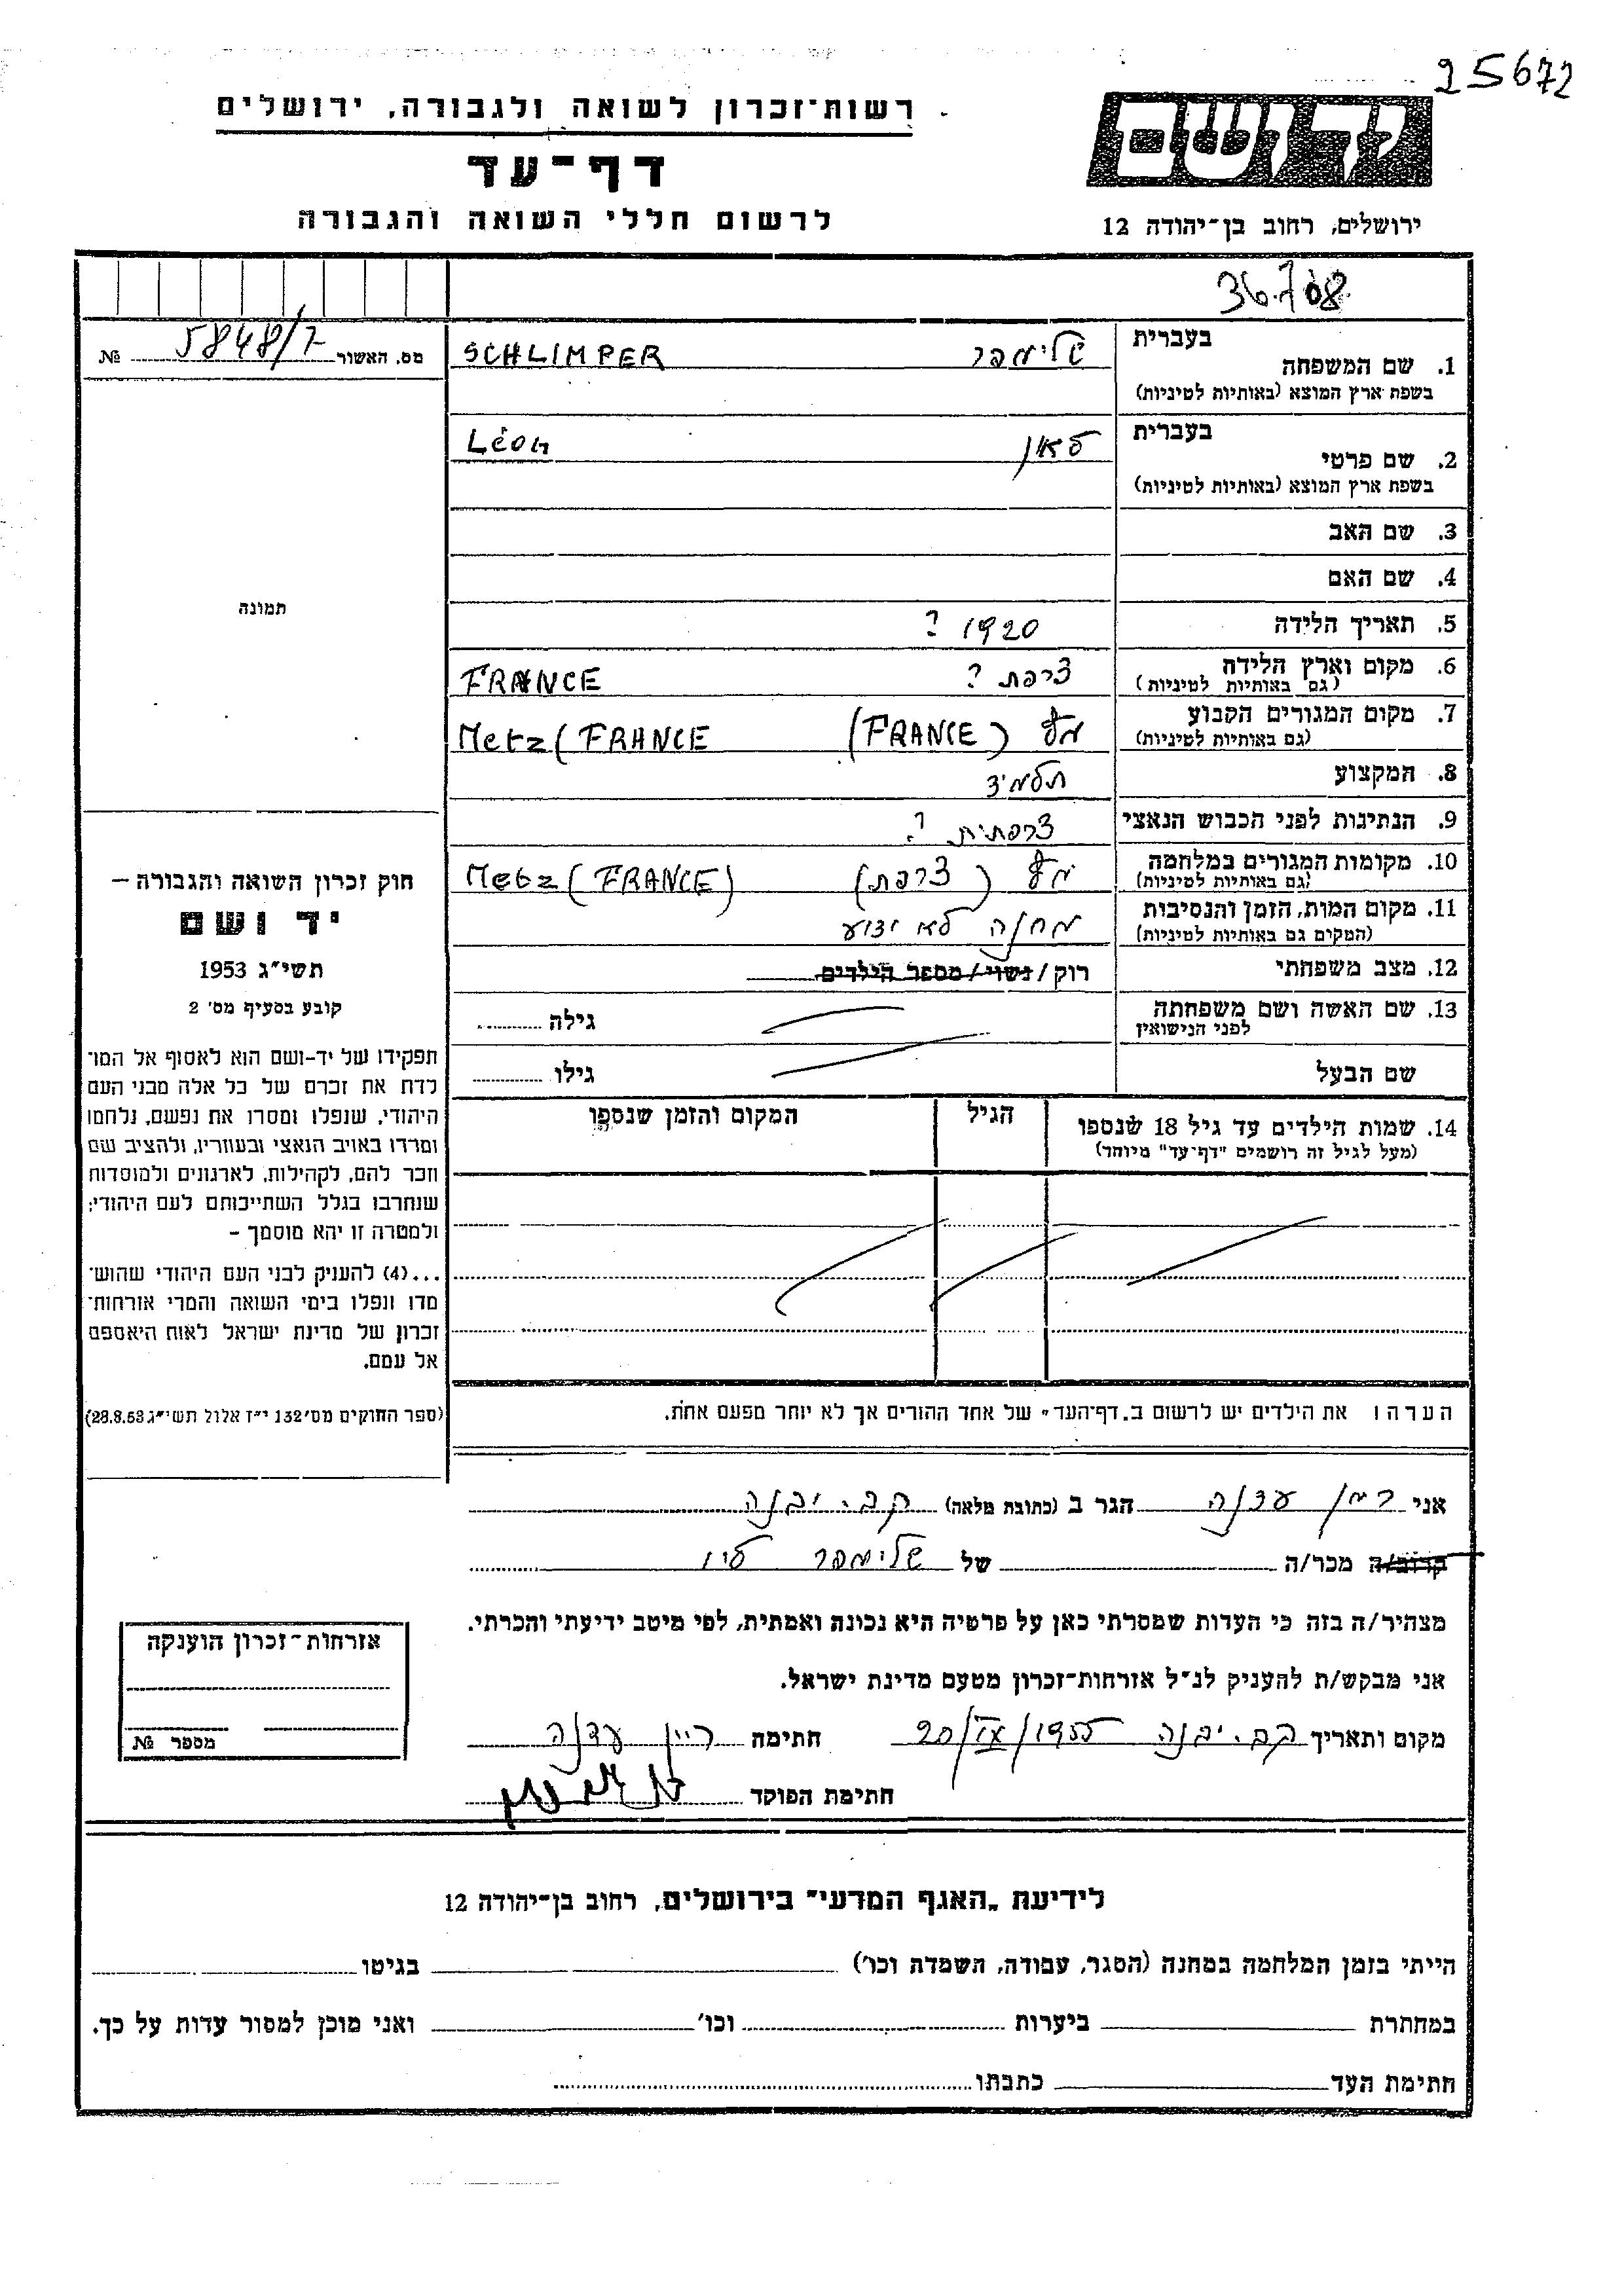 25672
רשות־זכרון לשואה ולגבורה, ירושלים
דף־עד
לרשום חללי השואה והגבורה
יד ושם
ירושלים, רחוב בן־יהודה 12
36708
מס. האשור 5848/7 №
בעברית
1. שם המשפחה שלימפר SCHLIMPER
בשפת ארץ המוצא (באותיות לטיניות)
בעברית
2. שם פרטי לאון Léon
בשפת ארץ המוצא (באותיות לטיניות)
3. שם האב
4. שם האם
תמונה
5. תאריך הלידה 1920 ?
6. מקום וארץ הלידה צרפת ? FRANCE
(גם באותיות לטיניות)
7. מקום המגורים הקבוע מץ (FRANCE) Metz (FRANCE
(גם באותיות לטיניות)
8. המקצוע תלמיד
9. הנתינות לפני הכבוש הנאצי צרפתית ?
10. מקומות המגורים במלחמה מץ (צרפת) Metz (FRANCE)
(גם באותיות לטיניות)
11. מקום המות, הזמן והנסיבות מחנה לא ידוע
(המקום גם באותיות לטיניות)
12. מצב משפחתי רוק / נשוי / מספר הילדים
13. שם האשה ושם משפחתה גילה
לפני הנישואין
שם הבעל גילו
14. שמות הילדים עד גיל 18 שנספו הגיל המקום והזמן שנספו
(מעל לגיל זה רושמים "דף־עד" מיוחד)
הערה ו את הילדים יש לרשום ב„דף־העד" של אחד ההורים אך לא יותר מפעם אחת.
חוק זכרון השואה והגבורה —
יד ושם
תשי״ג 1953
קובע בסעיף מס׳ 2
תפקידו של יד-ושם הוא לאסוף אל המו־
לדת את זכרם של כל אלה מבני העם
היהודי, שנפלו ומסרו את נפשם, נלחמו
ומרדו באויב הנאצי ובעוזריו, ולהציב שם
וזכר להם, לקהילות, לארגונים ולמוסדות
שנחרבו בגלל השתייכותם לעם היהודי;
ולמטרה זו יהא מוסמך —
...(4) להעניק לבני העם היהודי שהוש־
מדו ונפלו בימי השואה והמרי אזרחות־
זכרון של מדינת ישראל לאות היאספם
אל עמם.
(ספר החוקים מס׳ 132 י״ז אלול תשי״ג 28.8.53)
אני רימן עדנה הגר ב (כתובת מלאה) קב. יבנה
קרוב/ה מכר/ה של שלימפר ליו
מצהיר/ה בזה כי העדות שמסרתי כאן על פרטיה היא נכונה ואמתית, לפי מיטב ידיעתי והכרתי.
אני מבקש/ת להעניק לנ״ל אזרחות־זכרון מטעם מדינת ישראל.
מקום ותאריך קב. יבנה 20/IX/1955 חתימה עדנה
חתימת הפוקד
אזרחות־זכרון הוענקה
מספר №
לידיעת „האגף המדעי" בירושלים, רחוב בן־יהודה 12
הייתי בזמן המלחמה במחנה (הסגר, עבודה, השמדה וכו׳) בגיטו
במחתרת ביערות וכו׳ ואני מוכן למסור עדות על כך.
חתימת העד כתבתו